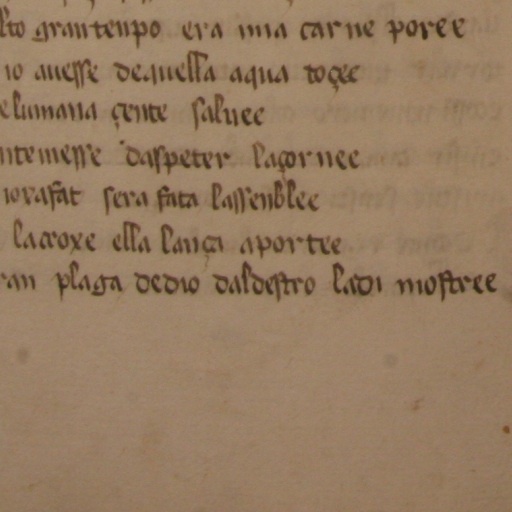 lto gran tenpo era mia carne poree
io auesse de quella aqua toçee
elumana çente saluee
ntemesse daspeter laçornee
iorafat sera fata lassenblee
lacroxe ella lança aportee
ran plaga dedio daldestro ladi mostree